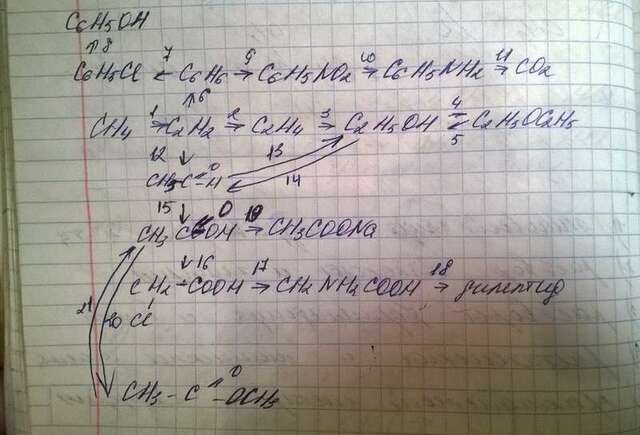 C6H5OH
↑8
C6H5Cl ←7 C6H6 →9 C6H5NO2 →10 C6H5NH2 →11 CO2
↑6
CH4 →1 C2H2 →2 C2H4 →3 C2H5OH ⇌4 5 C2H5OC2H5
12 ↓ 13
CH3C=O-H 14
15 ↓
CH3COOH →19 CH3COONa
↓ 16
CH2-COOH →17 CH2NH2COOH →18 дипептид
21 20 Cl
CH3-C=O-OCH3